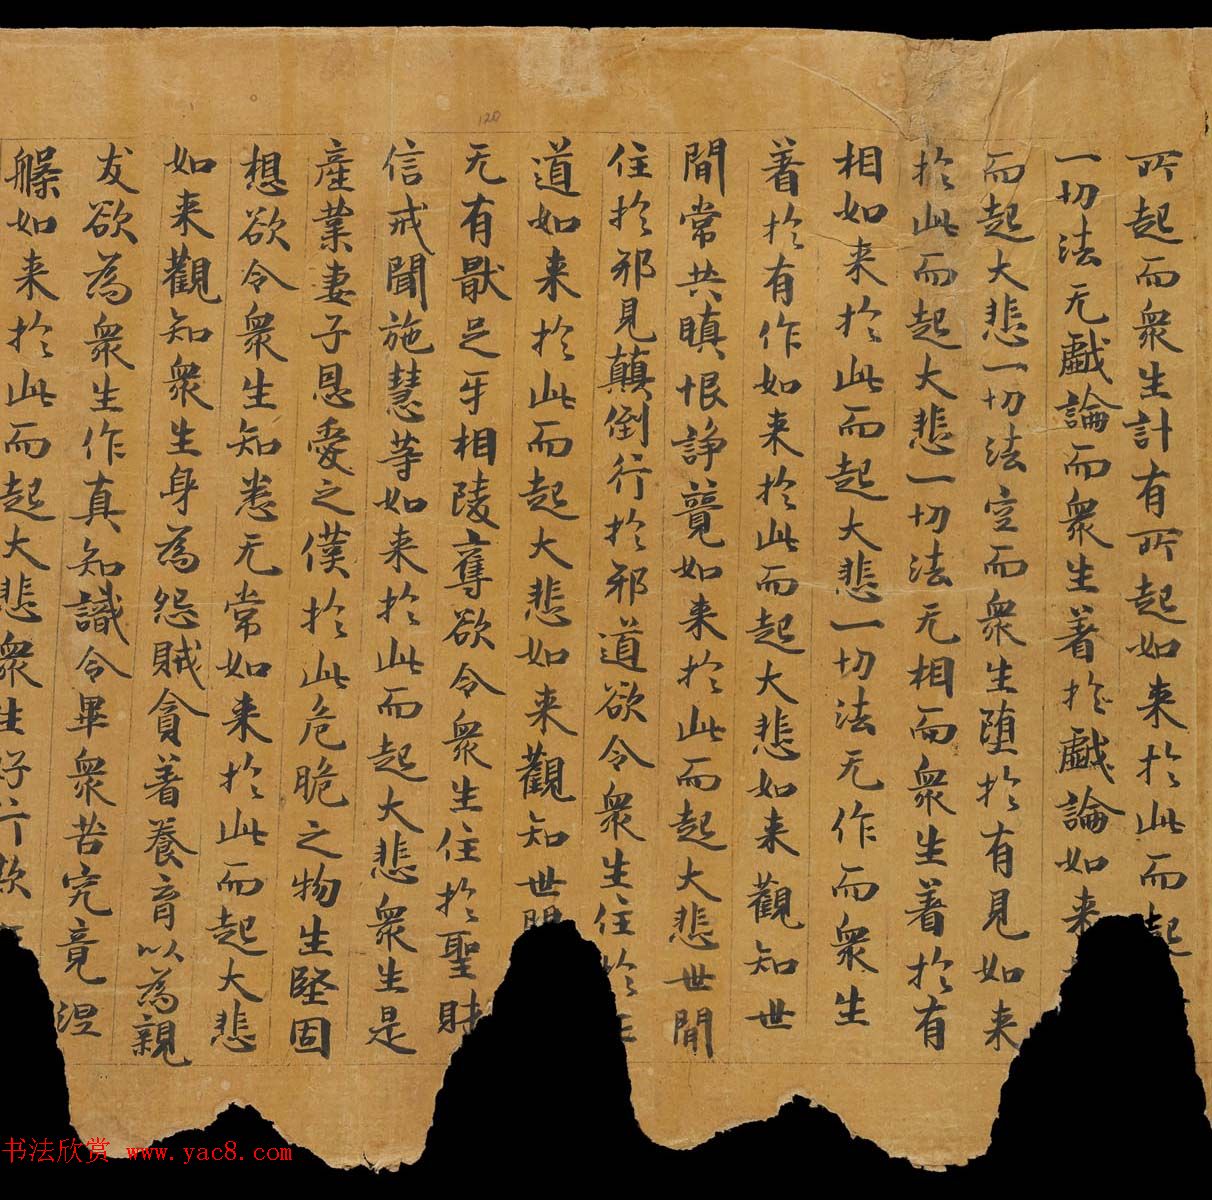 所起而衆生計有所起如来於此而起
一切法无戲論而衆生著於戲論如来
而起大悲一切法空而衆生堕於有見如来
於此而起大悲一切法无相而衆生著於有
相如来於此而起大悲一切法无作而衆生
著於有作如来於此而起大悲如来觀知世
間常共瞋恨諍競如来於此而起大悲世間
住於邪見顛倒行於邪道欲令衆生住於
道如来於此而起大悲如来觀知世間
无有猒足牙相陵奪欲令衆生住於聖財
信戒聞施慧等如来於此而起大悲衆生是
產業妻子恩愛之僕於此危脆之物生堅固
想欲令衆生知悉无常如来於此而起大悲
如来觀知衆生身為怨賊貪著養育以為親
友欲為衆生作真知識令畢衆苦究竟涅
槃如来於此而起大悲衆生好行欺
120
书法欣赏 www.yac8.com